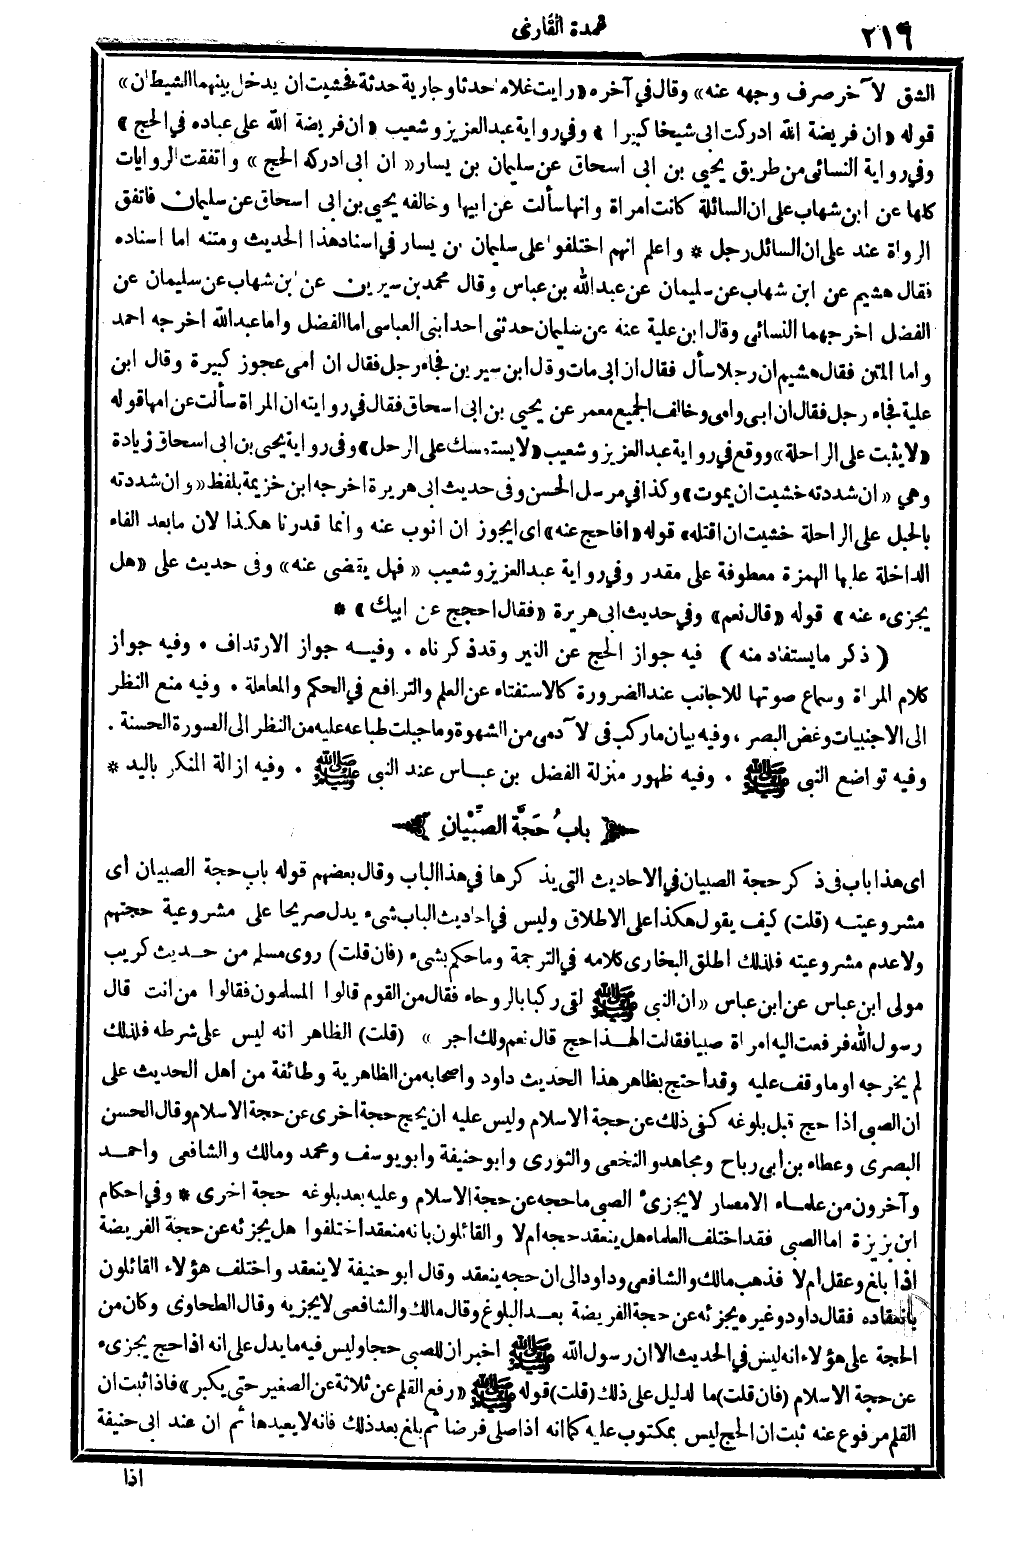 ٢١٦
عمدة القارى
الشق الآخر صرف وجهه عنه» وقال في آخره «رايت غلاما حدثا وجارية حدثة فخشيت ان يدخل بينهما الشيطان»
قوله «ان فريضة الله ادركت ابى شيخا كبيرا» وفي رواية عبد العزيز وشعيب «ان فريضة الله على عباده في الحج»
وفي رواية النسائى من طريق يحيى بن ابى اسحاق عن سليمان بن يسار «ان ابى ادركه الحج» واتفقت الروايات
كلها عن ابن شهاب على ان السائلة كانت امراة وانها سألت عن ابيها وخالفه يحيى بن ابى اسحاق عن سليمان فاتفق
الرواة عنه على ان السائل رجل * واعلم انهم اختلفوا على سليمان بن يسار في اسناد هذا الحديث ومتنه اما اسناده
فقال هشيم عن ابن شهاب عن سليمان عن عبد الله بن عباس وقال محمد بن سيرين عن ابن شهاب عن سليمان عن
الفضل اخرجهما النسائى وقال ابن علية عنه عن سليمان حدثنى احد ابنى العباس اما الفضل واما عبد الله اخرجه احمد
واما المتن فقال هشيم ان رجلا سأل فقال ان ابى مات وقال ابن سيرين فجاء رجل فقال ان امى عجوز كبيرة وقال ابن
علية فجاء رجل فقال ان ابى وامى وخالف الجميع معمر عن يحيى بن ابى اسحاق فقال في روايته ان المراة سألت عن امها قوله
«لا يثبت على الراحلة» ووقع في رواية عبد العزيز وشعيب «لا يستمسك على الرحل» وفى رواية يحيى بن ابى اسحاق زيادة
وهي «ان شددته خشيت ان يموت» وكذا في مرسل الحسن وفى حديث ابى هريرة اخرجه ابن خزيمة بلفظ «وان شددته
بالحبل على الراحلة خشيت ان اقتله» قوله «افاحج عنه» اى ايجوز ان انوب عنه وانما قدرنا هكذا لان مابعد الفاء
الداخلة عليها الهمزة معطوفة على مقدر وفي رواية عبد العزيز وشعيب «فهل يقضى عنه» وفى حديث على «هل
يجزىء عنه» قوله «قال نعم» وفي حديث ابى هريرة «فقال احجج عن ابيك» *
(ذكر مايستفاد منه) فيه جواز الحج عن الغير وقد ذكرناه . وفيه جواز الارتداف . وفيه جواز
كلام المراة وسماع صوتها للاجانب عند الضرورة كالاستفتاء عن العلم والترافع في الحكم والمعاملة . وفيه منع النظر
الى الاجنبيات وغض البصر . وفيه بيان ماركب في الآدمى من الشهوة وما جبلت طباعه عليه من النظر الى الصورة الحسنة .
وفيه تواضع النبى ﷺ . وفيه ظهور منزلة الفضل بن عباس عند النبى ﷺ . وفيه ازالة المنكر باليد *
باب حجة الصبيان
اى هذا باب فى ذكر حجة الصبيان في الاحاديث التى يذكرها في هذا الباب وقال بعضهم قوله باب حجة الصبيان أى
مشروعيته (قلت) كيف يقول هكذا على الاطلاق وليس في احاديث الباب شىء يدل صريحا على مشروعية حجتهم
ولا عدم مشروعيته فلذلك اطلق البخارى كلامه في الترجمة وما حكم بشىء (فان قلت) روى مسلم من حديث كريب
مولى ابن عباس عن ابن عباس «ان النبى ﷺ لقى ركبا بالروحاء فقال من القوم قالوا المسلمون فقالوا من انت قال
رسول الله فرفعت اليه امراة صبيا فقالت الهذا حج قال نعم ولك اجر» (قلت) الظاهر انه ليس على شرطه فلذلك
لم يخرجه او ما وقف عليه وقد احتج بظاهر هذا الحديث داود واصحابه من الظاهرية وطائفة من أهل الحديث على
ان الصبى اذا حج قبل بلوغه كفى ذلك عن حجة الاسلام وليس عليه ان يحج حجة اخرى عن حجة الاسلام وقال الحسن
البصرى وعطاء بن أبى رباح ومجاهد والنخعى والثورى وابو حنيفة وابو يوسف ومحمد ومالك والشافعى واحمد
وآخرون من علماء الامصار لا يجزىء الصبى ما حجه عن حجة الاسلام وعليه بعد بلوغه حجة اخرى * وفي احكام
ابن بزيزة اما الصبى فقد اختلف العلماء هل ينعقد حجه ام لا والقائلون بانه منعقد اختلفوا هل يجزئه عن حجة الفريضة
اذا بلغ وعقل أم لا فذهب مالك والشافعى وداود الى ان حجه ينعقد وقال ابو حنيفة لا ينعقد واختلف هؤلاء القائلون
بانعقاده فقال داود وغيره يجزئه عن حجة الفريضة بعد البلوغ وقال مالك والشافعى لا يجزيه وقال الطحاوى وكان من
الحجة على هؤلاء انه ليس في الحديث الا ان رسول الله ﷺ اخبر ان للصبى حجا وليس فيه ما يدل على انه اذا حج يجزىء
عن حجة الاسلام (فان قلت) ما لدليل على ذلك (قلت) قوله ﷺ «رفع القلم عن ثلاثة عن الصغير حتى يكبر» فاذا ثبت ان
القلم مرفوع عنه ثبت ان الحج ليس بمكتوب عليه كما انه اذا صلى فرضا ثم بلغ بعد ذلك فانه لا يعيدها ثم ان عند ابى حنيفة
اذا